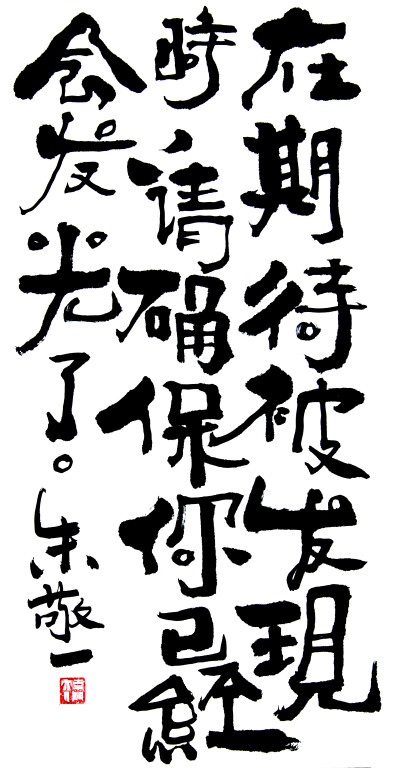 在期待被发現
時请确保你已經
会发光了。朱敬一